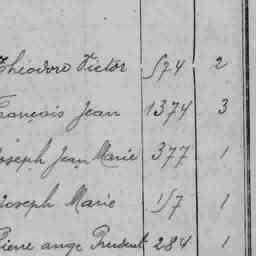 Théodore Victor 574 2
François Jean 1374 3
Joseph Jean Marie 377 1
Joseph Marie 157 1
Pierre ange Prudent 284 1